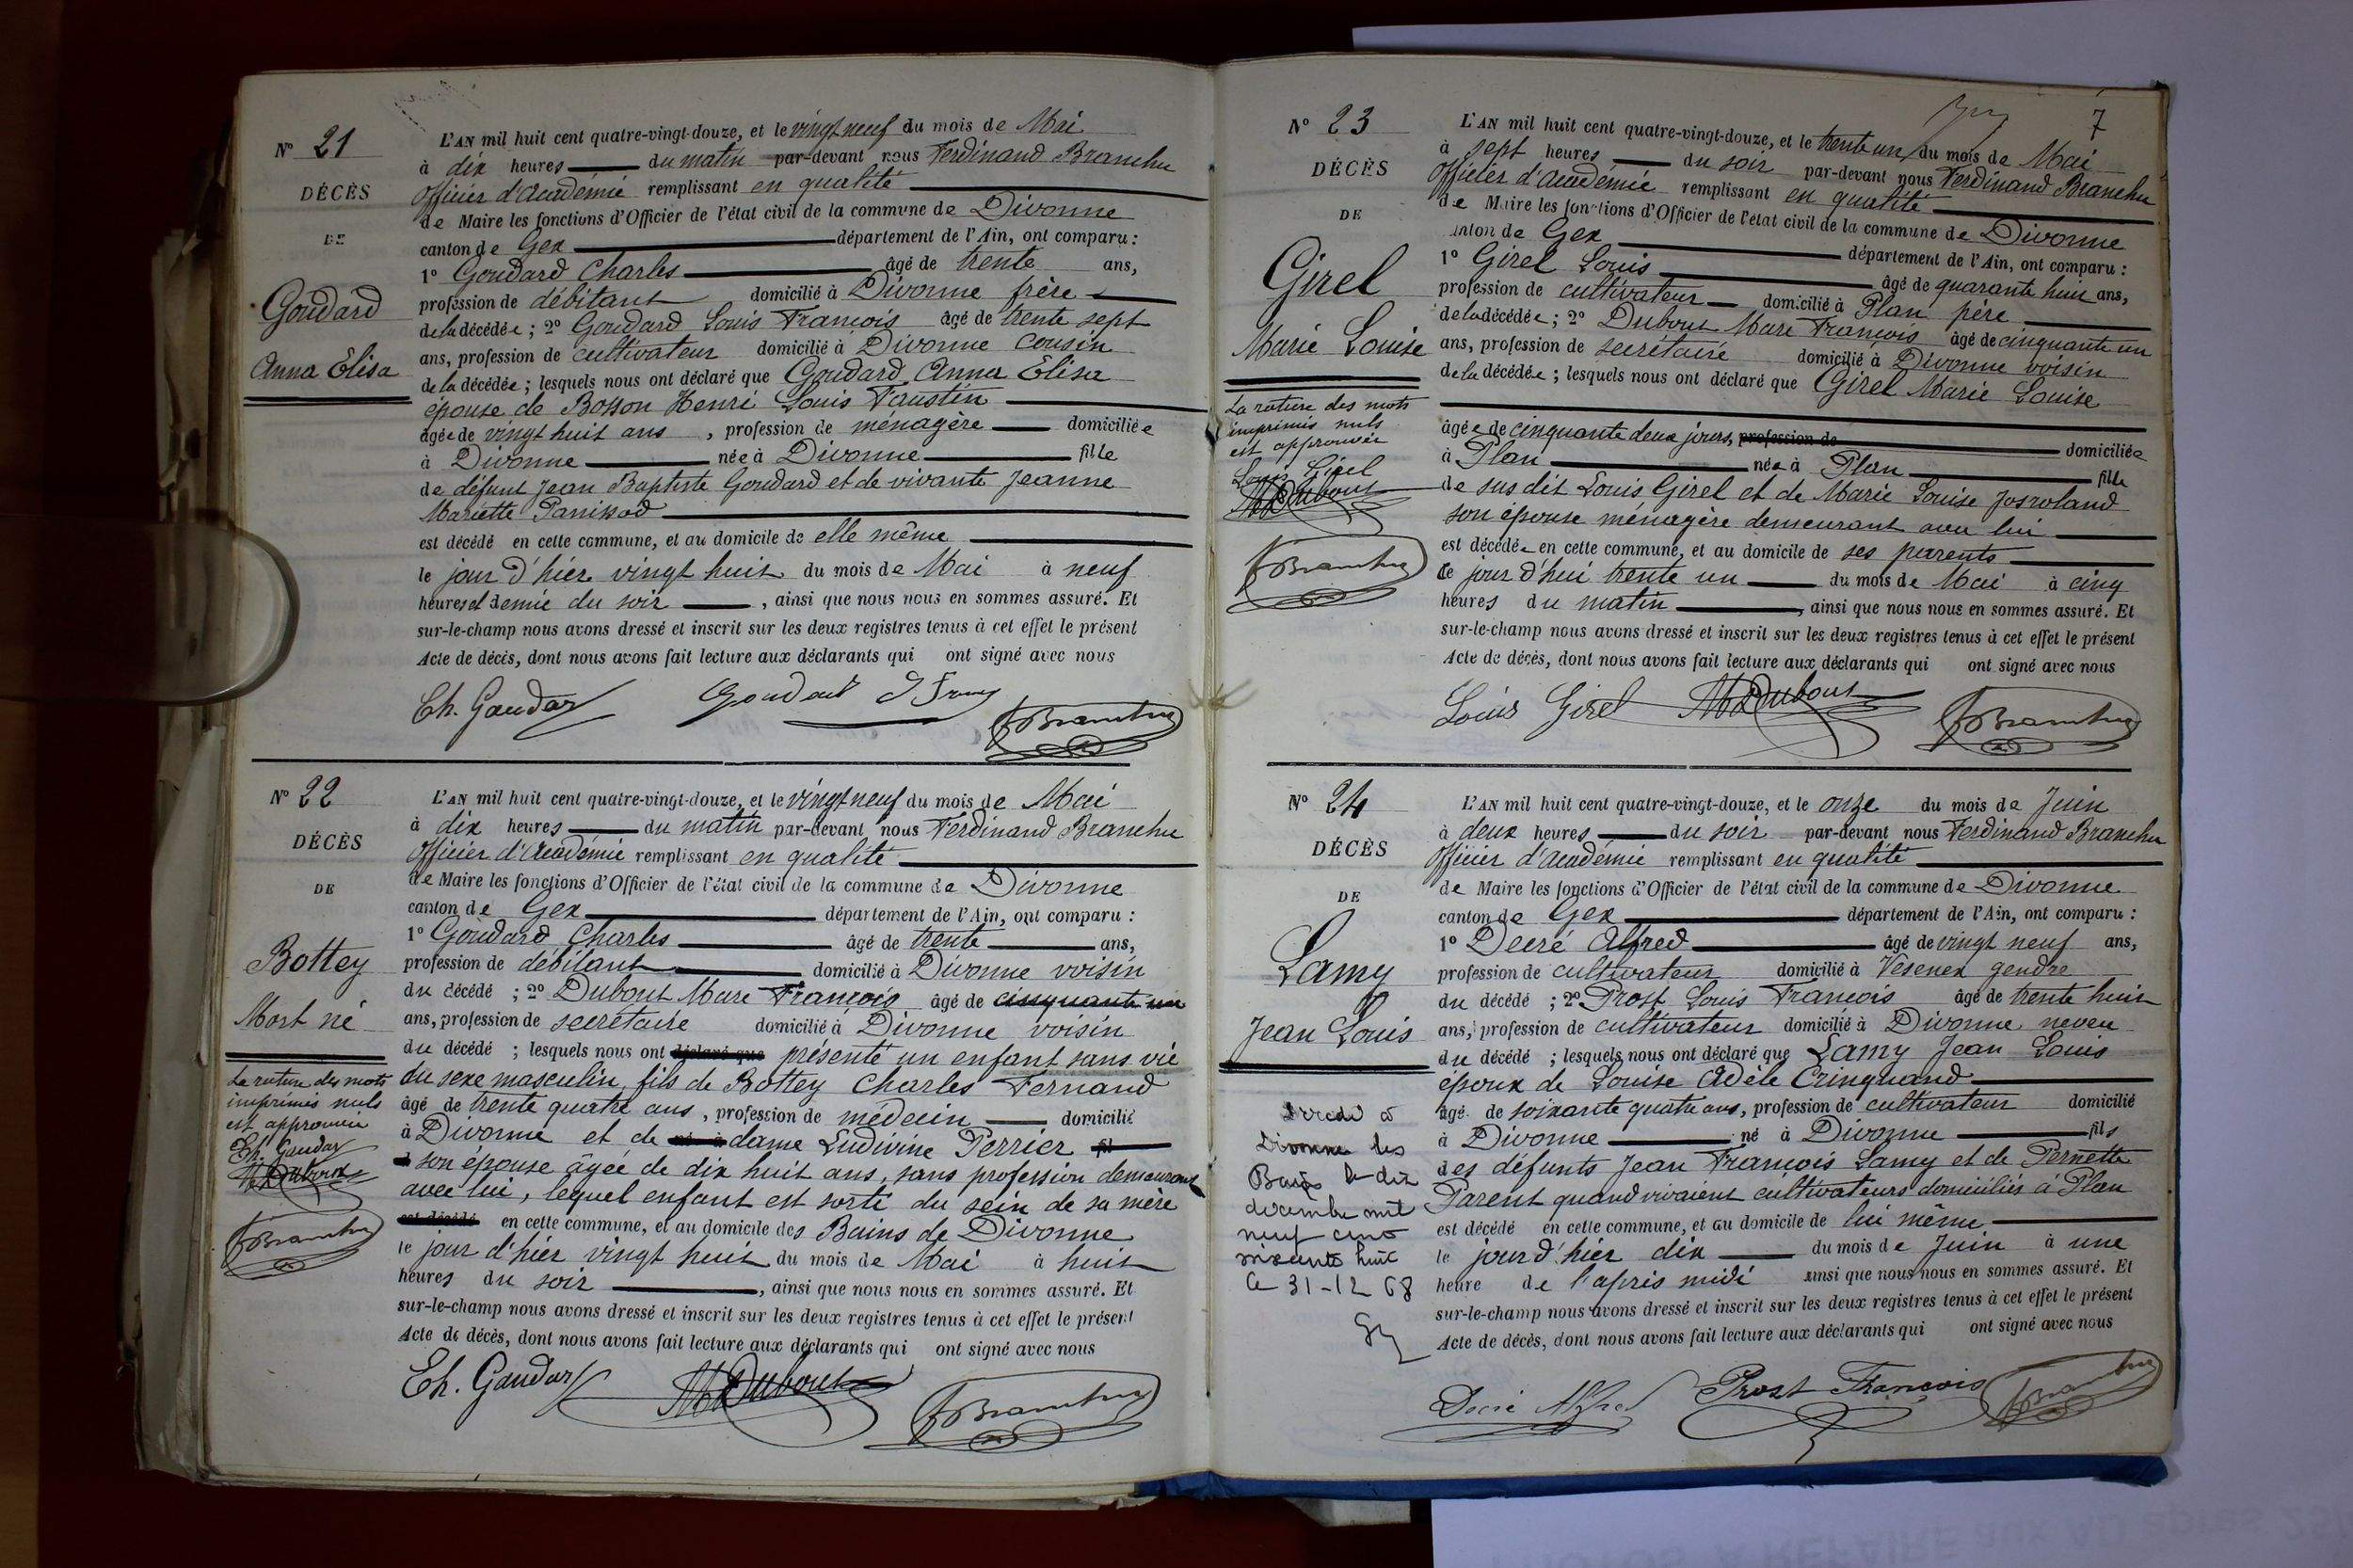 N° 21
DÉCÈS
DE
Goudard
Anna Elisa
L'AN mil huit cent quatre-vingt-douze, et le vingt neuf du mois de Mai
à dix heures du matin par-devant nous Ferdinand Branchu
Officier d'Académie remplissant en qualité
de Maire les fonctions d'Officier de l'état civil de la commune de Divonne
canton de Gex département de l'Ain, ont comparu :
1° Goudard Charles âgé de trente ans,
profession de débitant domicilié à Divonne frère
de la décédée ; 2° Goudard Louis François âgé de trente sept
ans, profession de cultivateur domicilié à Divonne cousin
de la décédée ; lesquels nous ont déclaré que Goudard Anna Elisa
épouse de Bosson Henri Louis Faustin
âgée de vingt huit ans, profession de ménagère domiciliée
à Divonne née à Divonne fille
de défunt Jean Baptiste Goudard et de vivante Jeanne
Mariette Panissod
est décédé en cette commune, et au domicile de elle même
le jour d'hier vingt huit du mois de Mai à neuf
heures et demie du soir, ainsi que nous nous en sommes assuré. Et
sur-le-champ nous avons dressé et inscrit sur les deux registres tenus à cet effet le présent
Acte de décès, dont nous avons fait lecture aux déclarants qui ont signé avec nous
Ch. Goudard Goudard FBranchu
N° 22
DÉCÈS
DE
Bottey
Mort né
La rature des mots
imprimés nuls
est approuvée
Ch. Goudard
MDubout
FBranchu
L'AN mil huit cent quatre-vingt-douze, et le vingt neuf du mois de Mai
à dix heures du matin par-devant nous Ferdinand Branchu
Officier d'Académie remplissant en qualité
de Maire les fonctions d'Officier de l'état civil de la commune de Divonne
canton de Gex département de l'Ain, ont comparu :
1° Goudard Charles âgé de trente ans,
profession de débitant domicilié à Divonne voisin
du décédé ; 2° Dubout Marc François âgé de cinquante un
ans, profession de secrétaire domicilié à Divonne voisin
du décédé ; lesquels nous ont déclaré que présenté un enfant sans vie
du sexe masculin, fils de Bottey Charles Fernand
âgé de trente quatre ans, profession de médecin domicilié
à Divonne et de né à dame Ludivine Perrier fil
son épouse âgée de dix huit ans, sans profession demeurant
avec lui, lequel enfant est sorti du sein de sa mère
est décédé en cette commune, et au domicile des Bains de Divonne
le jour d'hier vingt huit du mois de Mai à huit
heures du soir, ainsi que nous nous en sommes assuré. Et
sur-le-champ nous avons dressé et inscrit sur les deux registres tenus à cet effet le présent
Acte de décès, dont nous avons fait lecture aux déclarants qui ont signé avec nous
Ch. Goudard MDubout FBranchu
7
N° 23
DÉCÈS
DE
Girel
Marie Louise
La rature des mots
imprimés nuls
est approuvée
Louis Girel
MDubout
FBranchu
L'AN mil huit cent quatre-vingt-douze, et le trente un du mois de Mai
à sept heures du soir par-devant nous Ferdinand Branchu
Officier d'Académie remplissant en qualité
de Maire les fonctions d'Officier de l'état civil de la commune de Divonne
canton de Gex département de l'Ain, ont comparu :
1° Girel Louis âgé de quarante huit ans,
profession de cultivateur domicilié à Plan père
de la décédée ; 2° Dubout Marc François âgé de cinquante un
ans, profession de secrétaire domicilié à Divonne voisin
de la décédée ; lesquels nous ont déclaré que Girel Marie Louise
âgée de cinquante deux jours, profession de domiciliée
à Plan née à Plan fille
de sus dit Louis Girel et de Marie Louise Josroland
son épouse ménagère demeurant avec lui
est décédée en cette commune, et au domicile de ses parents
ce jour d'hui trente un du mois de Mai à cinq
heures du matin, ainsi que nous nous en sommes assuré. Et
sur-le-champ nous avons dressé et inscrit sur les deux registres tenus à cet effet le présent
Acte de décès, dont nous avons fait lecture aux déclarants qui ont signé avec nous
Louis Girel MDubout FBranchu
N° 24
DÉCÈS
DE
Lamy
Jean Louis
Décédé à
Divonne les
Bains le dix
décembre mil
neuf cent
soixante huit
le 31-12 68
L'AN mil huit cent quatre-vingt-douze, et le onze du mois de Juin
à deux heures du soir par-devant nous Ferdinand Branchu
Officier d'Académie remplissant en qualité
de Maire les fonctions d'Officier de l'état civil de la commune de Divonne
canton de Gex département de l'Ain, ont comparu :
1° Decré Alfred âgé de vingt neuf ans,
profession de cultivateur domicilié à Vesenex gendre
du décédé ; 2° Prost Louis François âgé de trente huit
ans, profession de cultivateur domicilié à Divonne neveu
du décédé ; lesquels nous ont déclaré que Lamy Jean Louis
époux de Louise Adèle Cringuand
âgé de soixante quatre ans, profession de cultivateur domicilié
à Divonne né à Divonne fils
des défunts Jean François Lamy et de Pernette
Parent quand vivaient cultivateurs domiciliés à Plan
est décédé en cette commune, et au domicile de lui même
le jour d'hier dix du mois de Juin à une
heure de l'après midi ainsi que nous nous en sommes assuré. Et
sur-le-champ nous avons dressé et inscrit sur les deux registres tenus à cet effet le présent
Acte de décès, dont nous avons fait lecture aux déclarants qui ont signé avec nous
Decré Alfred Prost François FBranchu